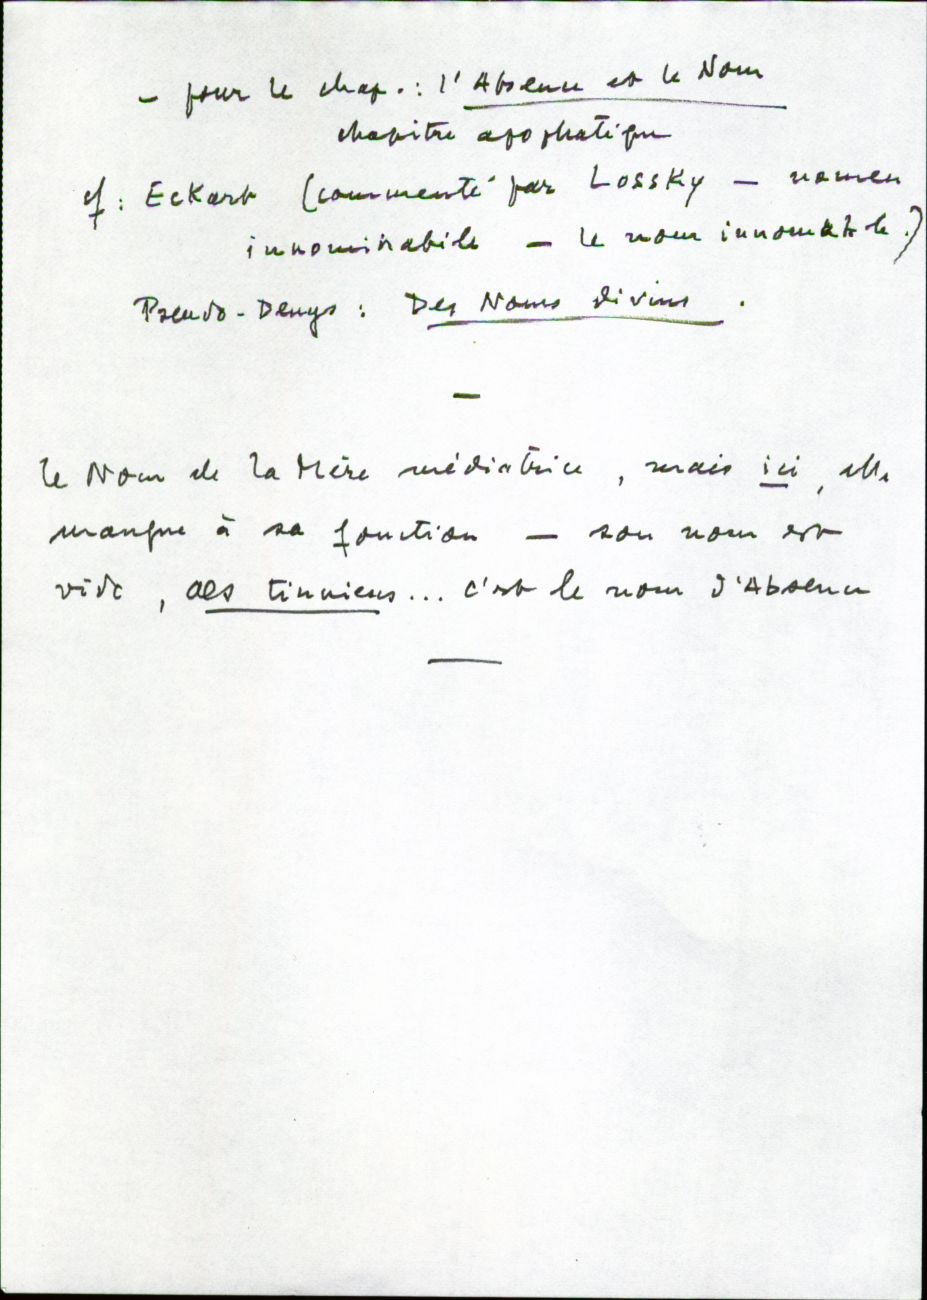 - pour le chap. : l'Absence et le Nom
chapitre apophatique
cf : Eckart (commenté par Lossky — nomen
innominabile — le nom innomable.)
Pseudo-Denys : Des Noms divins .
—
le Nom de la Mère médiatrice , mais ici , elle
manque à sa fonction — son nom est
vide , aes tinniens... c'est le nom d'Absence